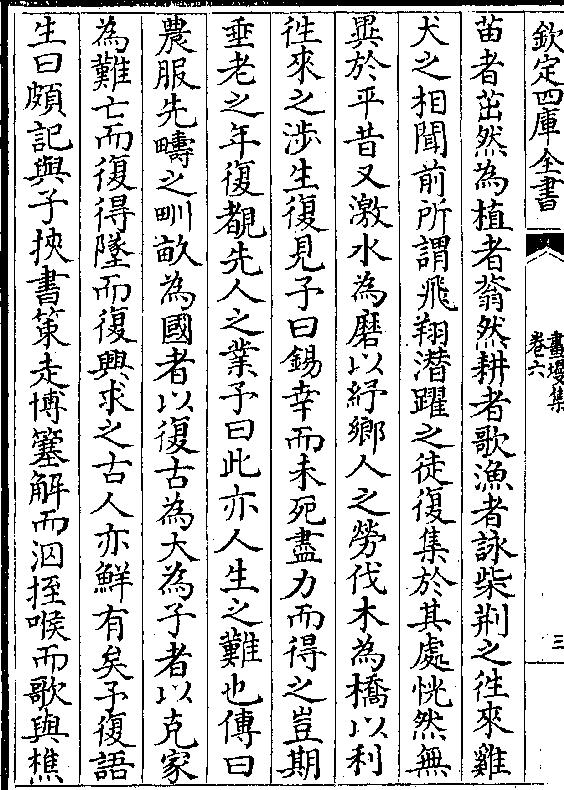 欽定四庫全書
畫墁集
卷六
三
苗者茁然為植者蓊然耕者歌漁者詠柴荆之徃來雞
犬之相聞前所謂飛翔潜躍之徒復集於其處恍然無
異於平昔又激水為磨以紓鄉人之勞伐木為橋以利
徃來之涉生復見子曰錫幸而未死盡力而得之豈期
垂老之年復覩先人之業予曰此亦人生之難也傳曰
農服先疇之畎畝為國者以復古為大為子者以克家
為難亡而復得墜而復興求之古人亦鮮有矣予復語
生曰頗記與子挾書策走博簺解而泅挃喉而歌與樵